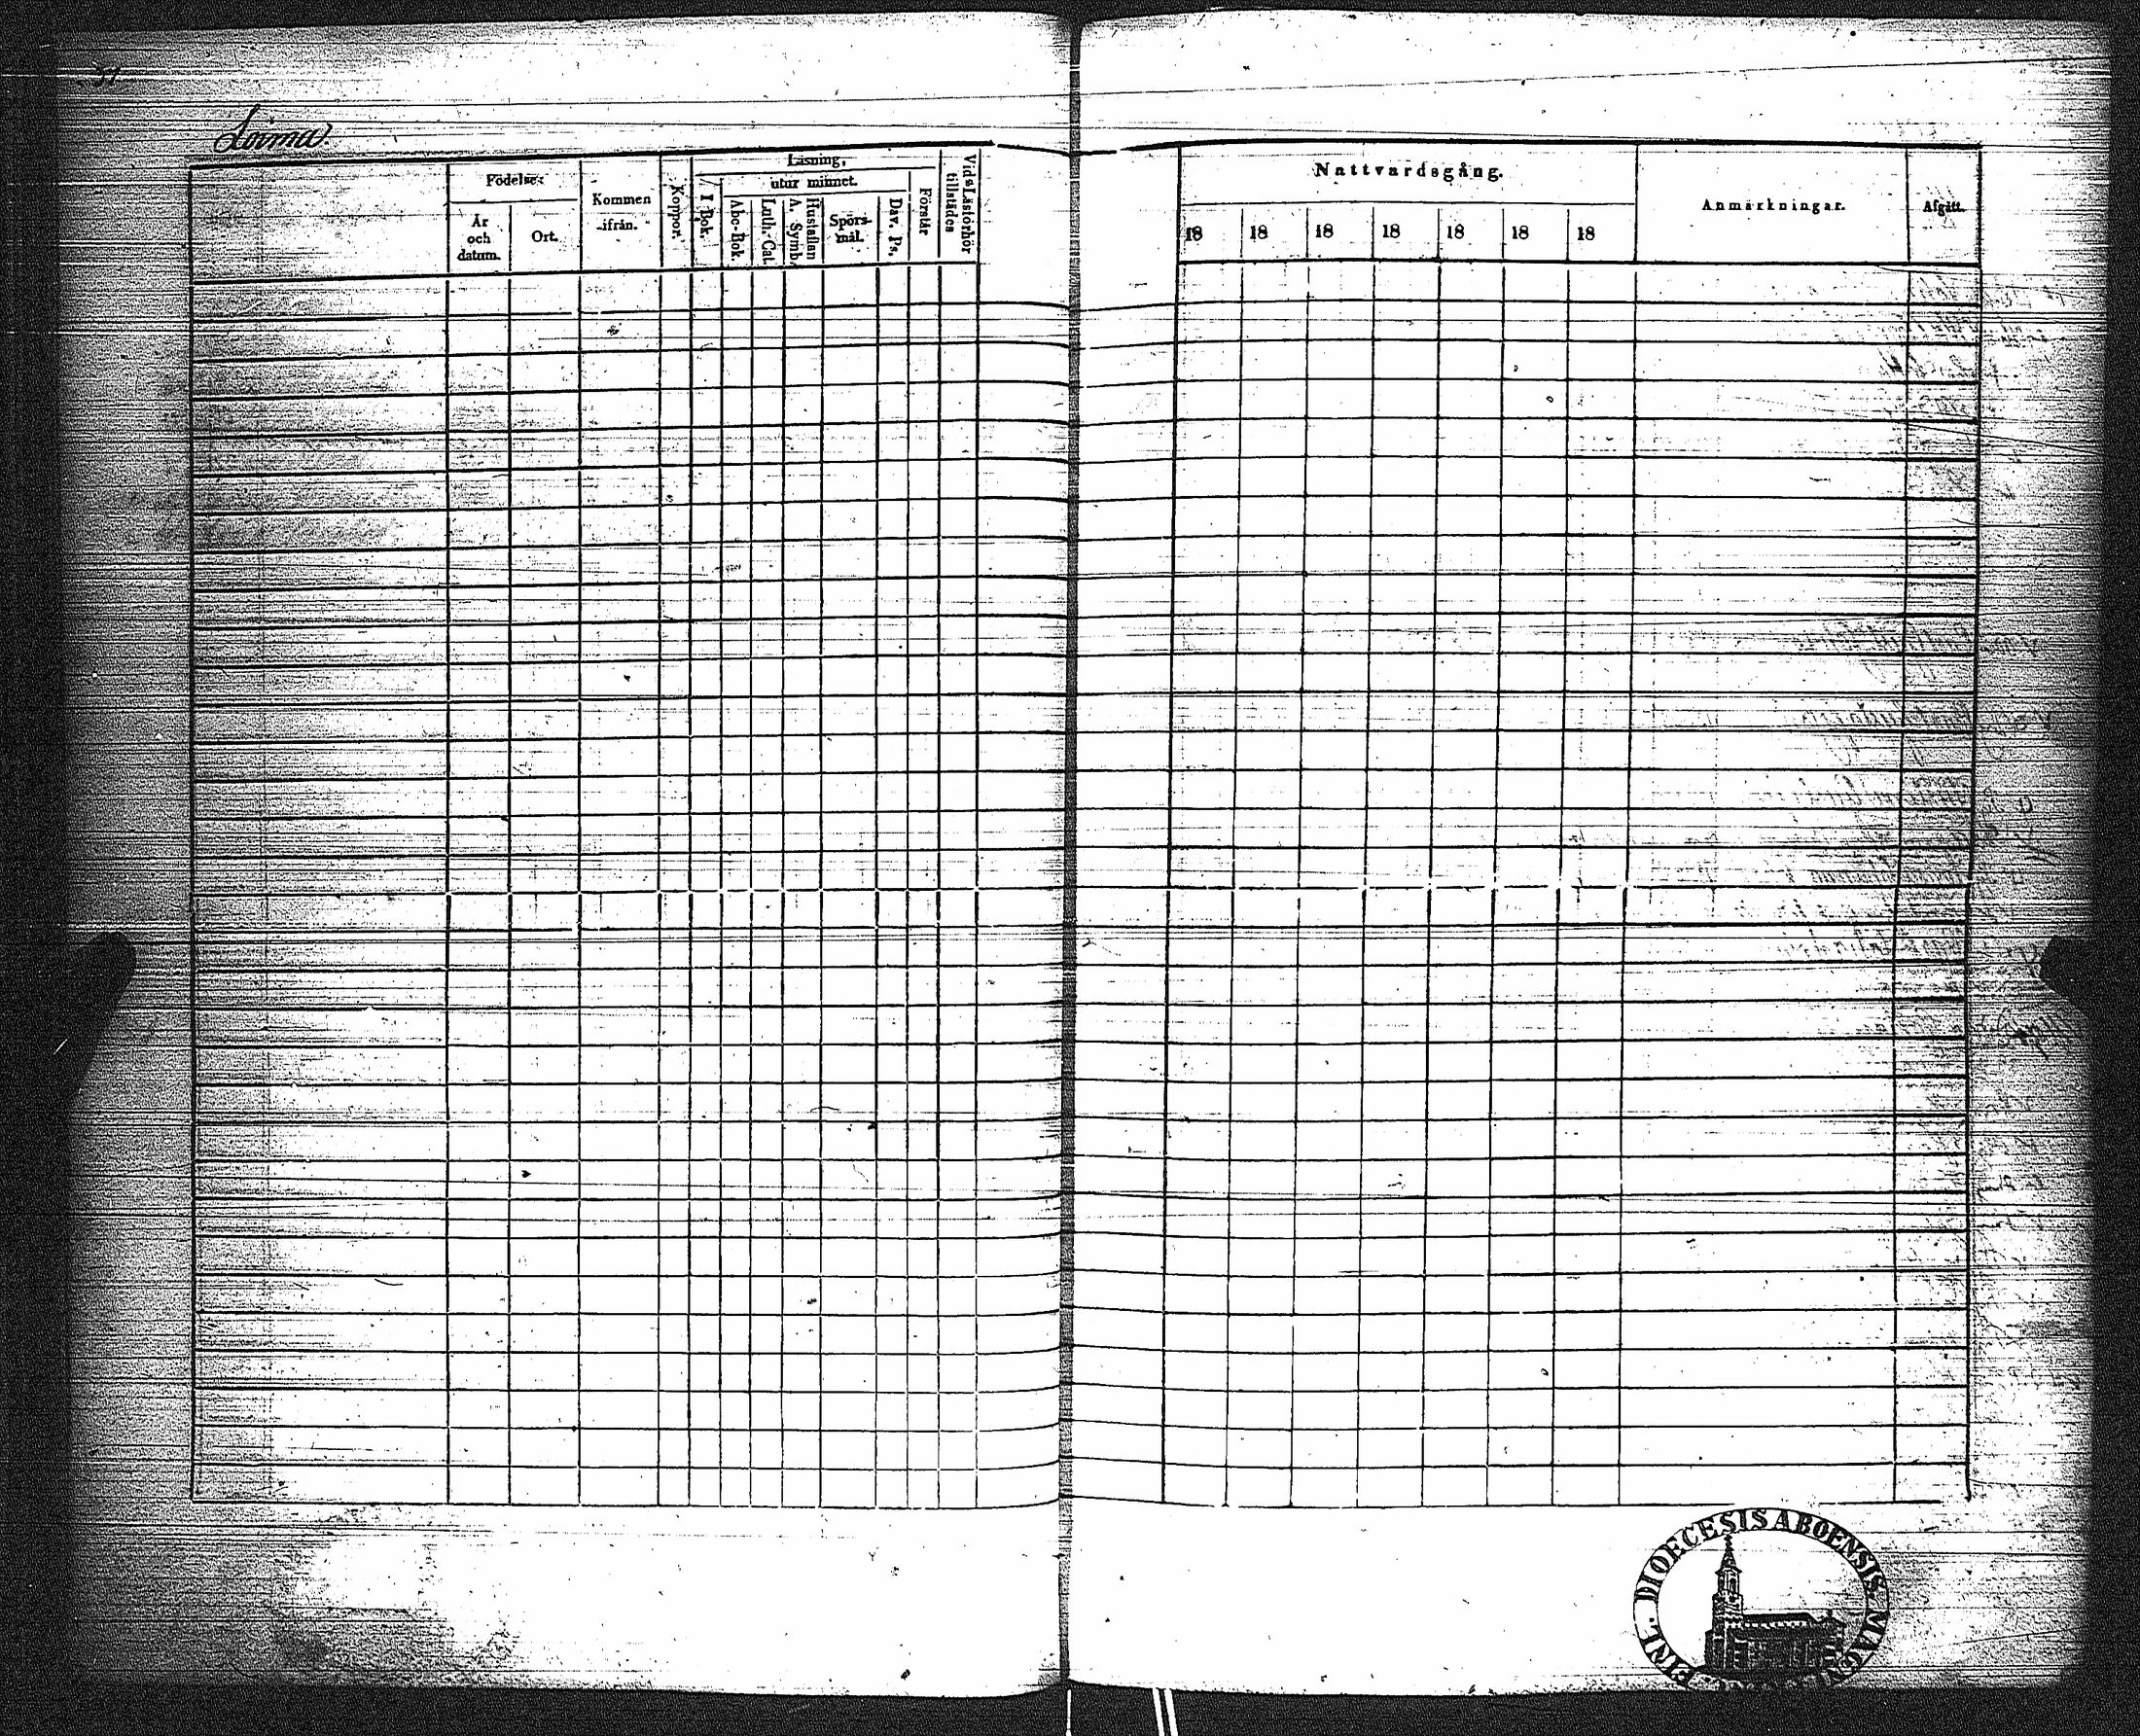 Loima.
Födelse:
År
och
datum.
Ort.
Kommen
ifrån.
Koppor.
Läsning,
utur minnet.
I Bok.
Abc-Bok.
Luth. Cat.
Hustaflan
A. Symb.
Spörs-
mål.
Dav. Ps.
Förstår
Vid Läsförhör
tillstädes
Nattvardsgång.
18 18 18 18 18 18 18
Anmärkningar.
Afgått.
DIOECESIS ABOENSIS